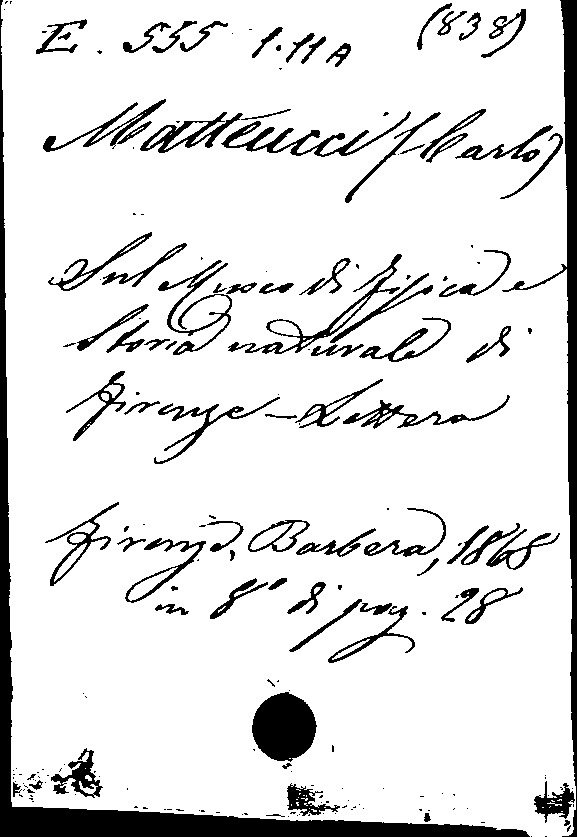 E. 555 1.11A (838)
Matteucci (Carlo)
Sul Museo di Fisica e
Storia naturale di
Firenze - Lettera
Firenze, Barbera, 1868
in 8º di pag. 28